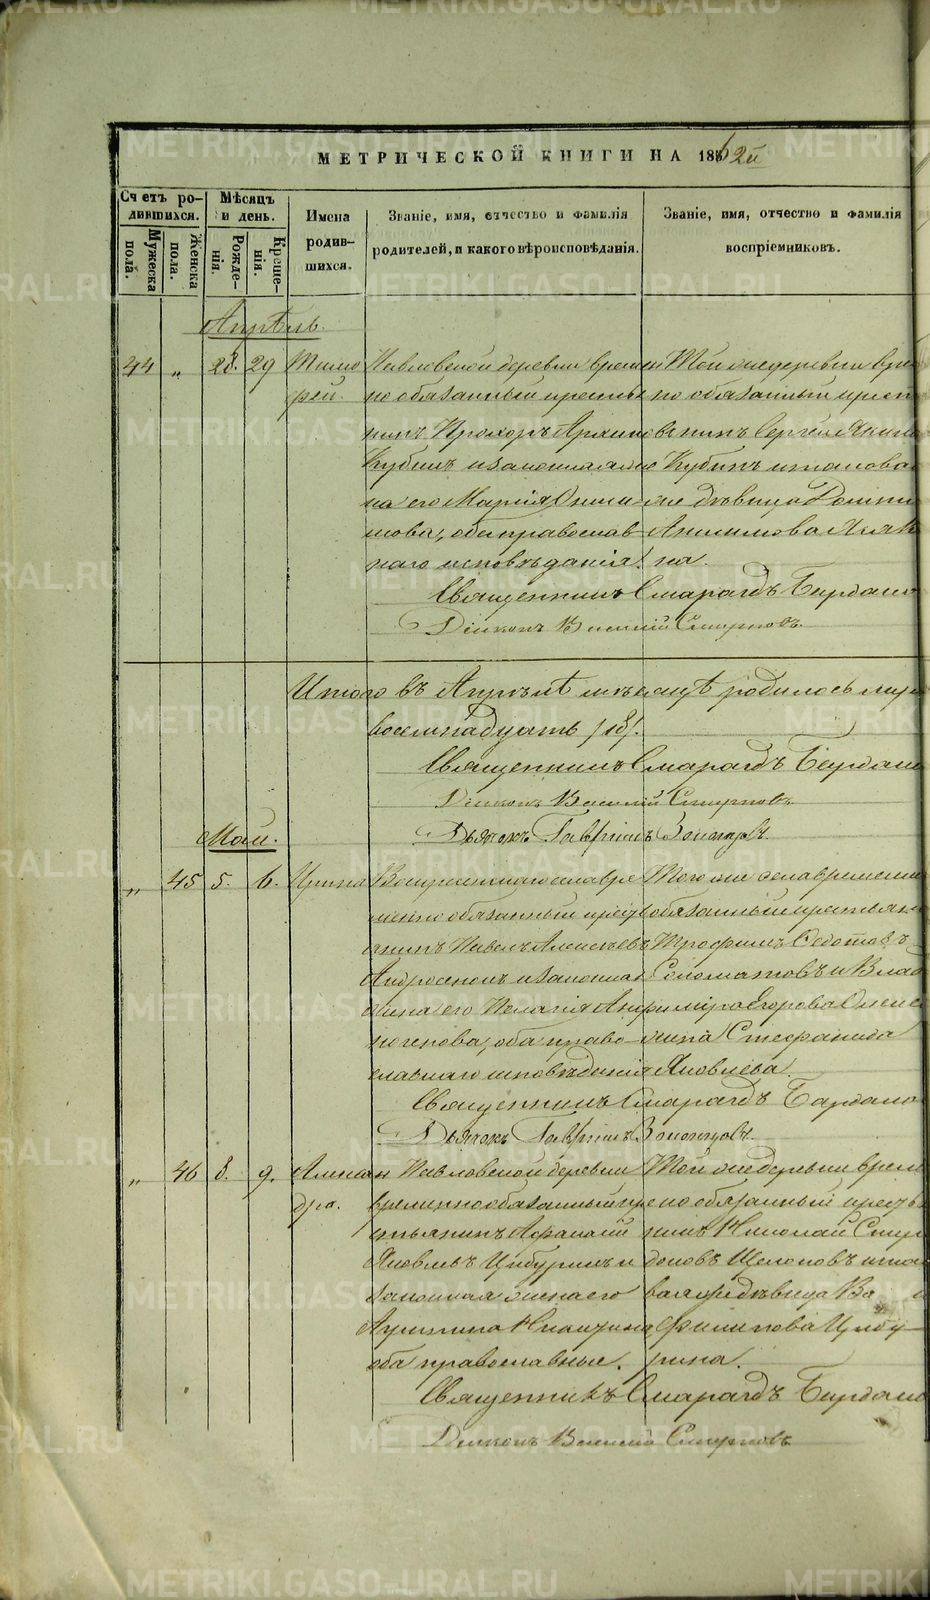 МЕТРИЧЕСКОЙ КНИГИ НА 1862й
Счетъ родившихся.
Мужеска пола.
Женска пола.
Мѣсяцъ и день.
Рожденія.
Крещенія.
Имена родившихся.
Званіе, имя, отчество и фамилія родителей, и какого вѣроисповѣданія.
Званіе, имя, отчество и фамилія воспріемниковъ.
Апрѣль.
44 „ 28. 29 Тимофей.
Павловской деревни времен
но обязанный крестья
нинъ Прохоръ Архипов
Кубинъ и законная же
на его Марія Они
мова, оба православ
наго исповѣданія.
Той же деревни вре
но обязанный крест
нинъ Сергей
Кубинъ и таковая
же дѣвица
Анисимова
на.
Священникъ Смарагдъ
Діаконъ Василій Смирновъ
Итого въ Апрѣлѣ мѣсяцѣ родилось
восемнадцать /18/.
Священникъ Смарагдъ
Діаконъ Василій Смирновъ
Дьячекъ Гавріилъ
Май.
„ 45 5. 6. Ирина
Воскресенскаго села вре
менно обязанный крест
янинъ Павелъ Алексѣевъ
и законная
жена его Пелагія Анфи
ногенова, оба право
славнаго исповѣданія
Того же села временно
обязанный крестьян
Трофимъ Федотовъ
Соломатовъ и Влад
міра Егорова
жена Стефанида
Яковлева.
Священникъ Смарагдъ
Дьячекъ Гавріилъ
„ 46 8. 9. Александра.
Павловской деревни
временнообязанный кре
стьянинъ Афанасій
Яковлевъ Цибуринъ и
законная жена его
Акулина Никитина
оба православные.
Той же деревни време
но обязанный крестья
нинъ Николай Спир
доновъ Щелоковъ и та
ковая дѣвица
Филипова Цибу
рина.
Священникъ Смарагдъ
Діаконъ Василій Смирновъ
METRIKI.GASO-URAL.RU